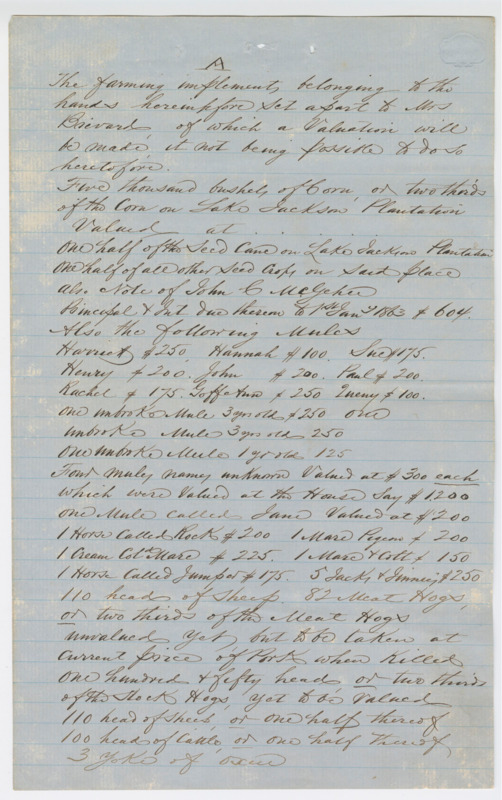 A
The farming implements belonging to the
hands hereinbefore set apart to Mrs
Brevard of which a Valuation will
be made it not being possible to do so
heretofore.
Five thousand bushels of Corn, or two thirds
of the Corn on Lake Jackson Plantation
Valued at . . . .
One half of the Seed Cane on Lake Jackson Plantation
One half of all other Seed Crops on Said place
Also Note of John C McGehee
Principal & Int due thereon to 1st Jany 1863 $ 604.
Also the following Mules
Harriet $250. Hannah $100. Sue $175.
Henry $200. John $200. Paul $200.
Rachel $175. Ann $250 $100.
One unbroke Mule 3 yrs old $250 one
unbroke Mule 3 yrs old 250
One unbroke Mule 1 yr old 125
Four mules names unknown Valued at $300 each
which were Valued at the House Say $1200
One Mule called Jane Valued at $200
1 Horse Called Rock $200 1 Mare Pigeon $200
1 Cream Cold Mare $225. 1 Mare & Colt $150
1 Horse Called Jumper $175. 5 Jacks & Jinnies $250
110 head of Sheep. 82 Meat Hogs,
or two thirds of the Meat Hogs
unvalued yet, but to be taken at
current price of Pork when killed
One hundred & fifty head or two thirds
of the Stock Hogs, yet to be Valued
110 head of Sheep or one half thereof
100 head of Cattle, or one half thereof,
3 yoke of oxen